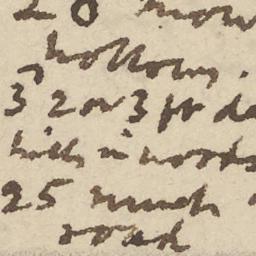 20 snow
hollows.
3 2 or 3 ft de
hills in woods
25 much
road